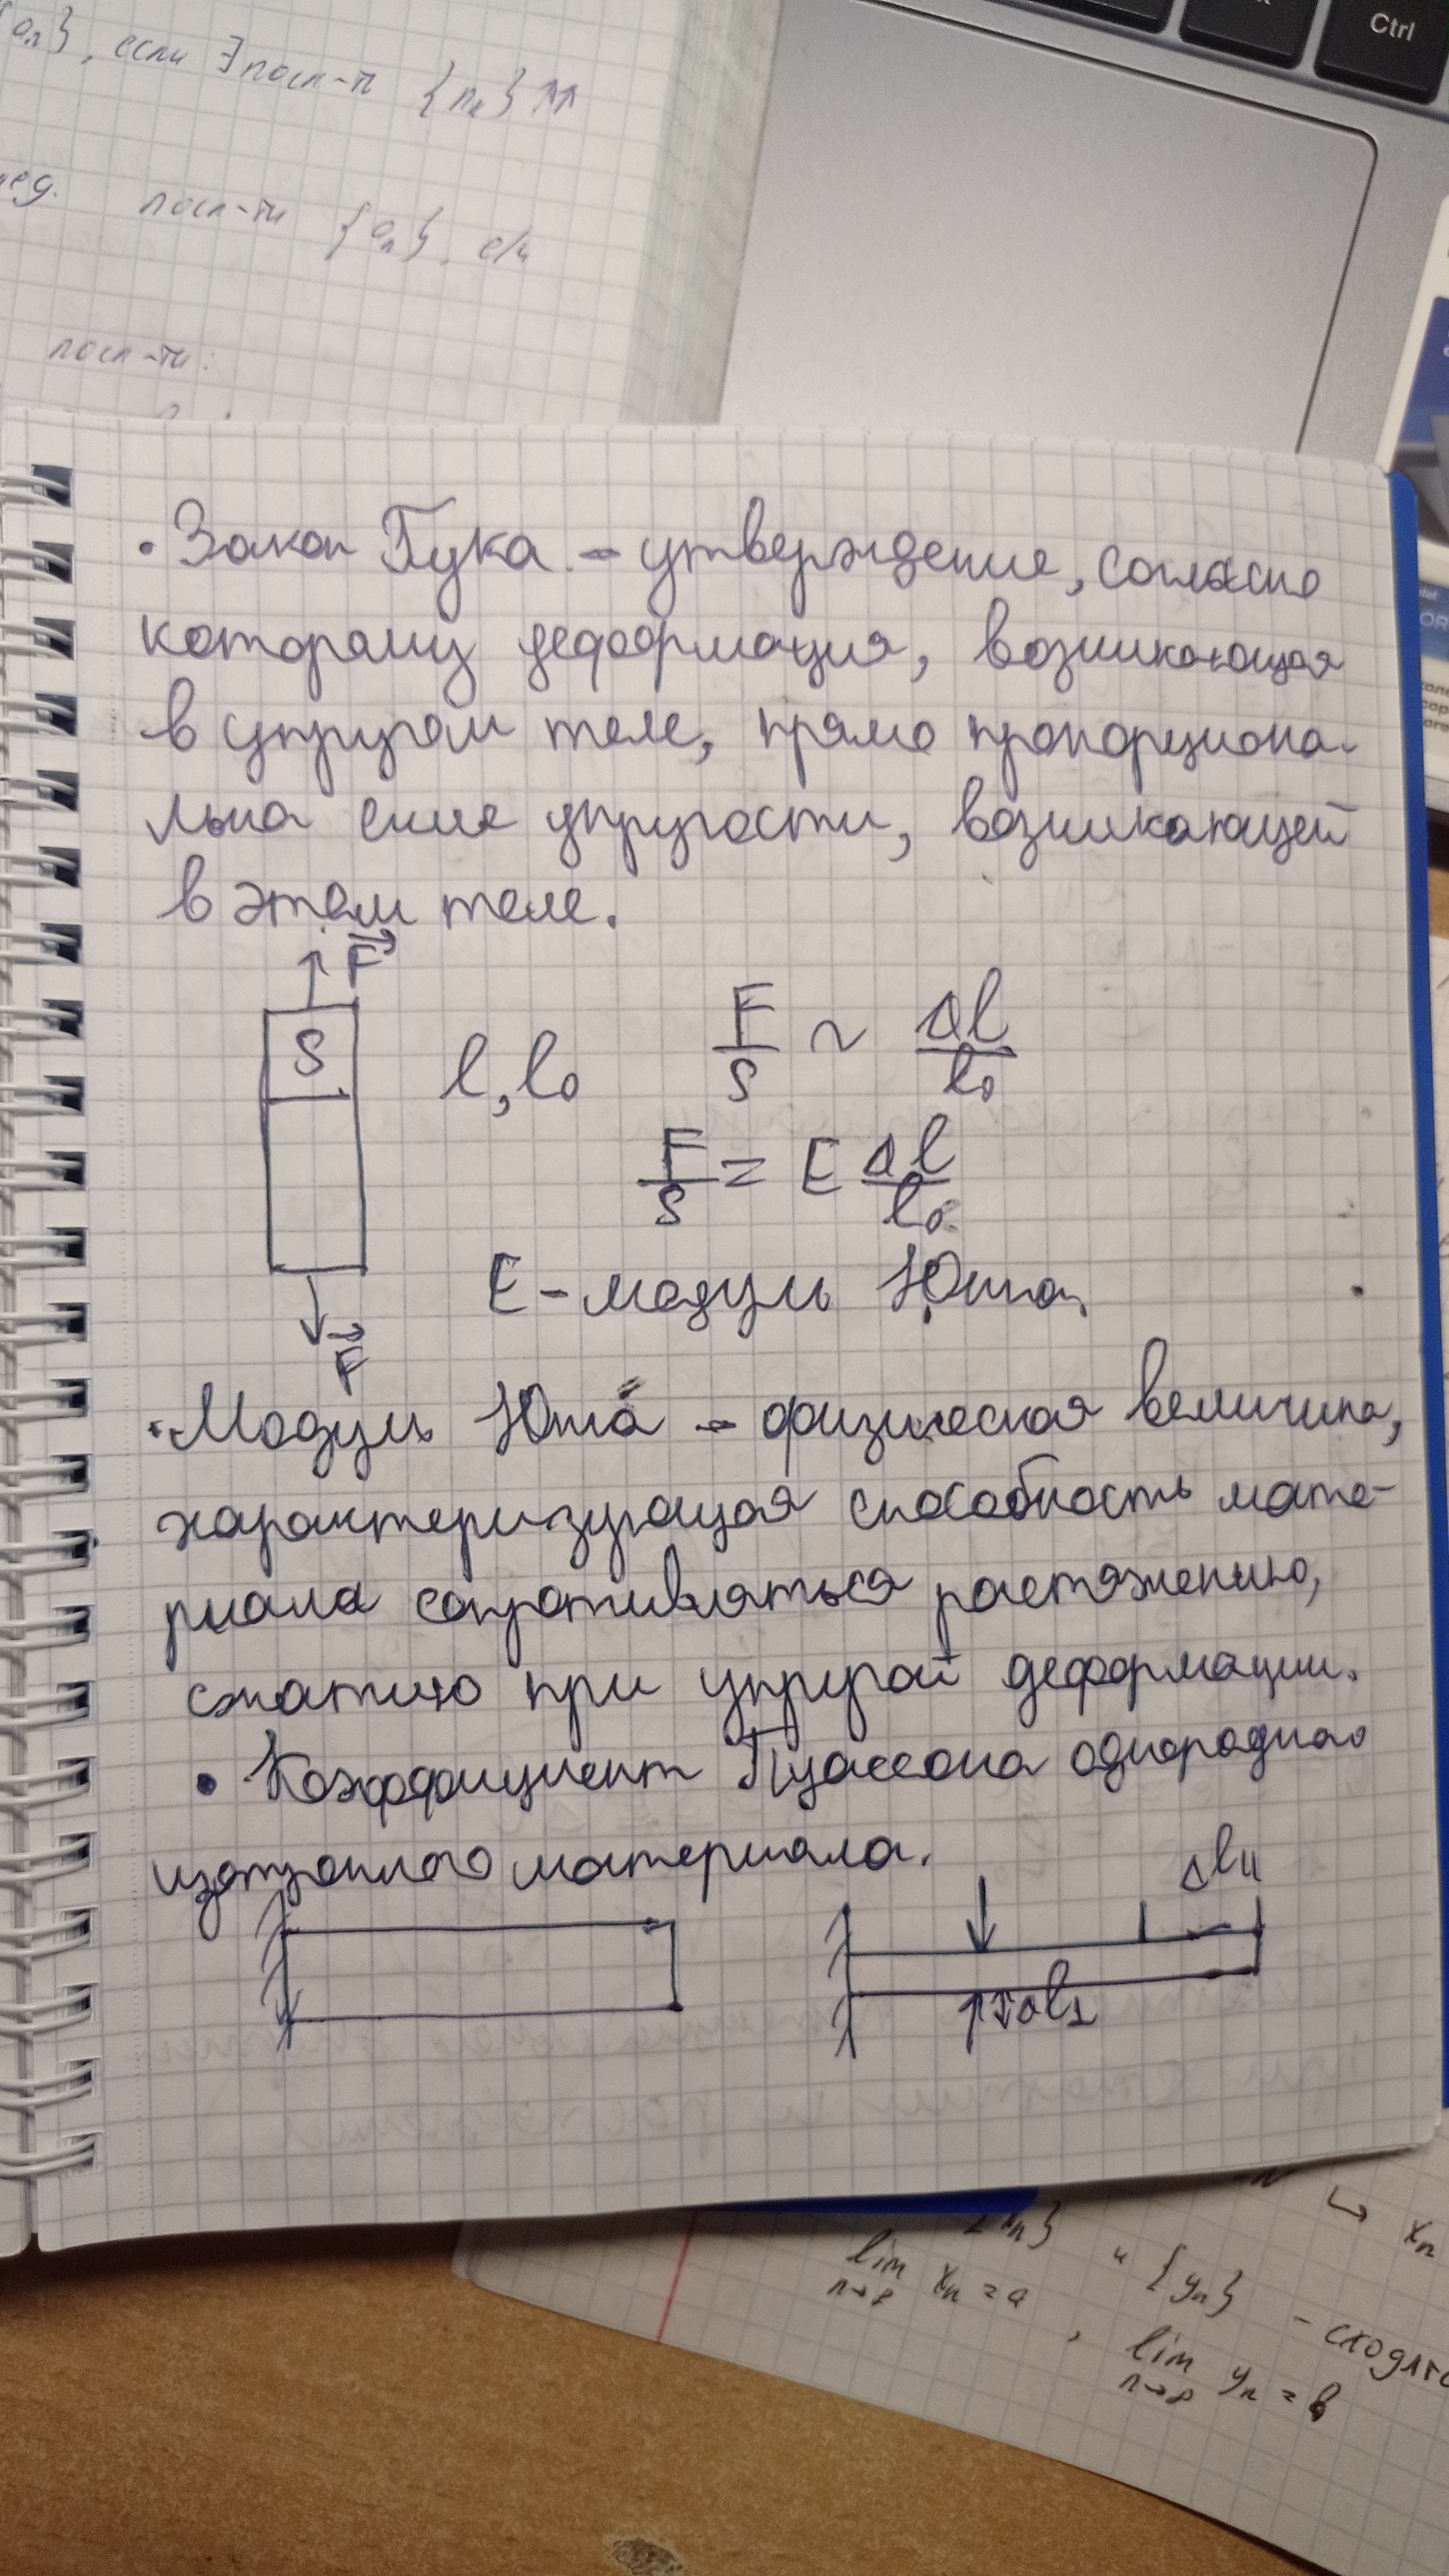 {aₙ}, если ∃ посл-ть {nₖ} ↑↑
посл-ти {aₙ}, если
посл-ти:
Ctrl
• Закон Гука - утверждение, согласно
которому деформация, возникающая
в упругом теле, прямо пропорциона-
льна силе упругости, возникающей
в этом теле.
F⃗
S
l, l₀
F/S ~ Δl/l₀
F/S = E Δl/l₀
E - модуль Юнга,
F⃗
• Модуль Юнга - физическая величина,
характеризующая способность мате-
риала сопротивляться растяжению,
сжатию при упругой деформации.
• Коэффициент Пуассона однородного
изотропного материала.
Δl||
Δl⊥
и {yₙ} - сходятся
lim xₙ = a, lim yₙ = b
n→∞ n→∞
xₙ